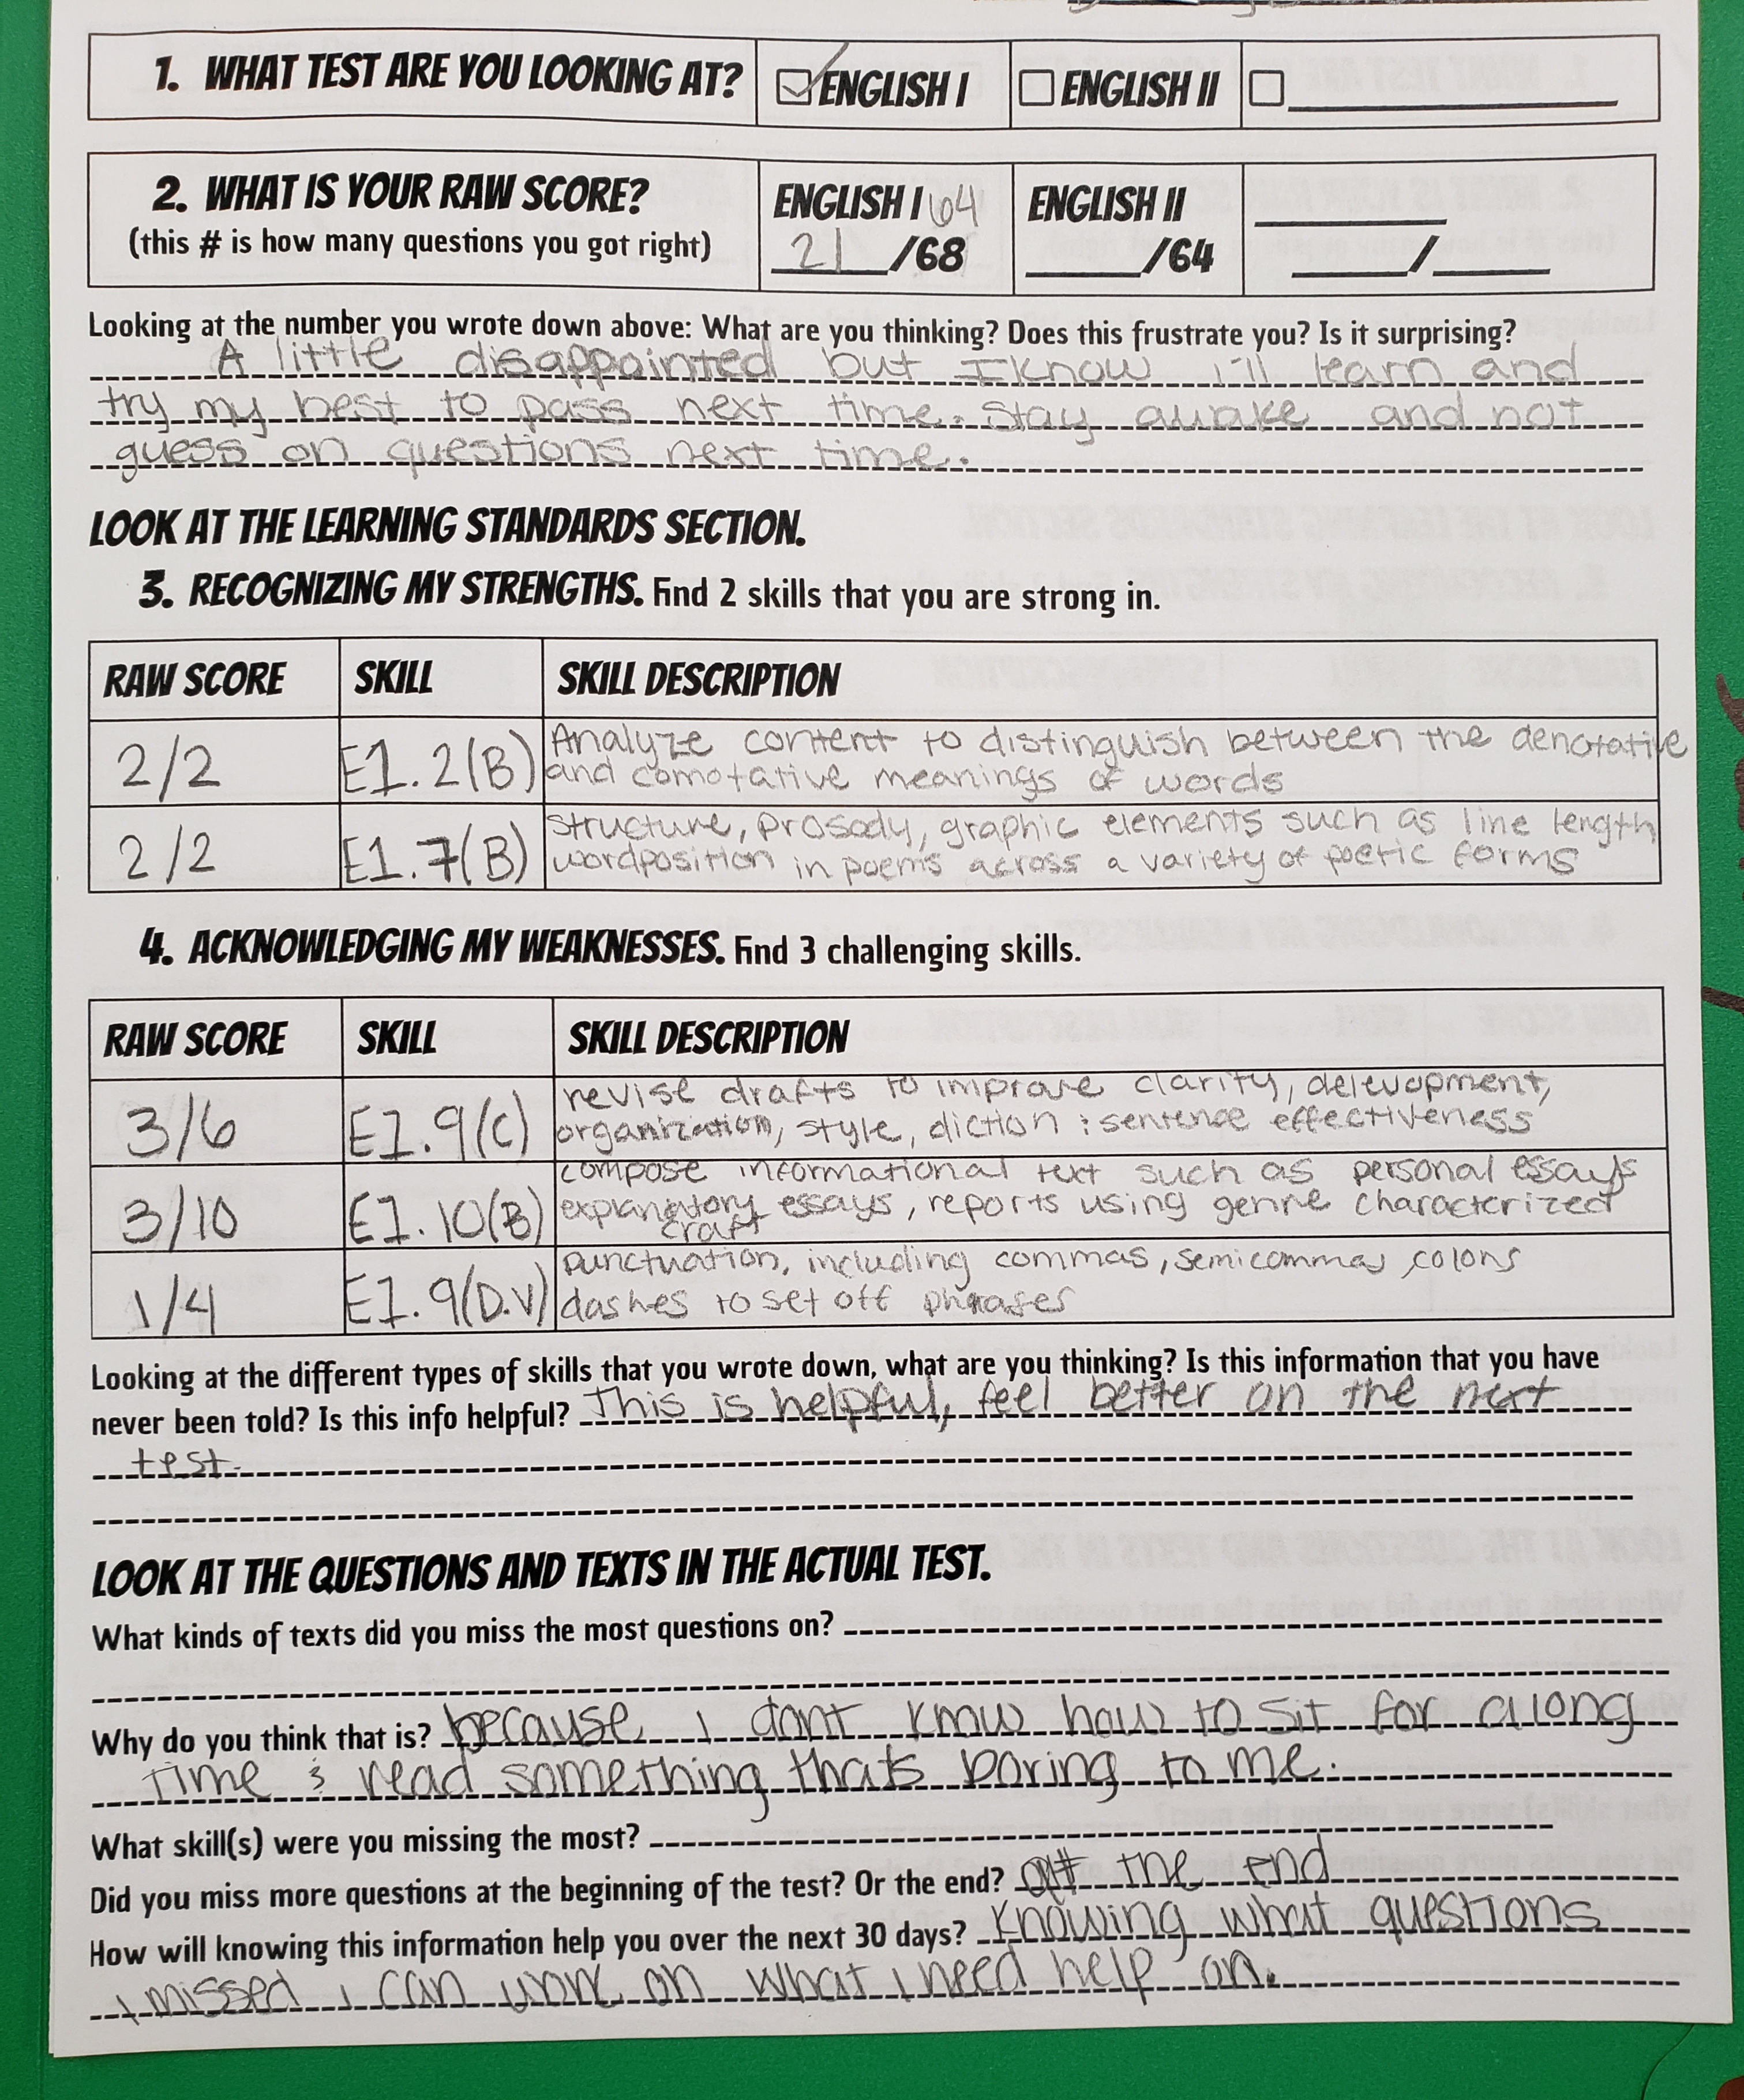 1. WHAT TEST ARE YOU LOOKING AT? ENGLISH I ENGLISH II
2. WHAT IS YOUR RAW SCORE? ENGLISH I 64 ENGLISH II
(this # is how many questions you got right) 21/68 /64 /
Looking at the number you wrote down above: What are you thinking? Does this frustrate you? Is it surprising?
A little disappointed but I know i'll learn and
try my best to pass next time. Stay awake and not
guess on questions next time.
LOOK AT THE LEARNING STANDARDS SECTION.
3. RECOGNIZING MY STRENGTHS. Find 2 skills that you are strong in.
RAW SCORE SKILL SKILL DESCRIPTION
2/2 E1.2(B) Analyze content to distinguish between the denotative
and comotative meanings of words
2/2 E1.7(B) structure, prosody, graphic elements such as line length
wordposition in poems across a variety of poetic forms
4. ACKNOWLEDGING MY WEAKNESSES. Find 3 challenging skills.
RAW SCORE SKILL SKILL DESCRIPTION
3/6 E1.9(C) revise drafts to improve clarity, development,
organization, style, diction ; sentence effectiveness
3/10 E1.10(B) compose informational text such as personal essays
explanatory essays, reports using genre characterized
craft
1/4 E1.9(D.V) punctuation, including commas, semicommas, colons
dashes to set off phrases
Looking at the different types of skills that you wrote down, what are you thinking? Is this information that you have
never been told? Is this info helpful? This is helpful, feel better on the next
test.
LOOK AT THE QUESTIONS AND TEXTS IN THE ACTUAL TEST.
What kinds of texts did you miss the most questions on?
Why do you think that is? because i dont know how to sit for along
time & read something thats boring to me.
What skill(s) were you missing the most?
Did you miss more questions at the beginning of the test? Or the end? at the end
How will knowing this information help you over the next 30 days? Knowing what questions
I missed i can work on what i need help on.